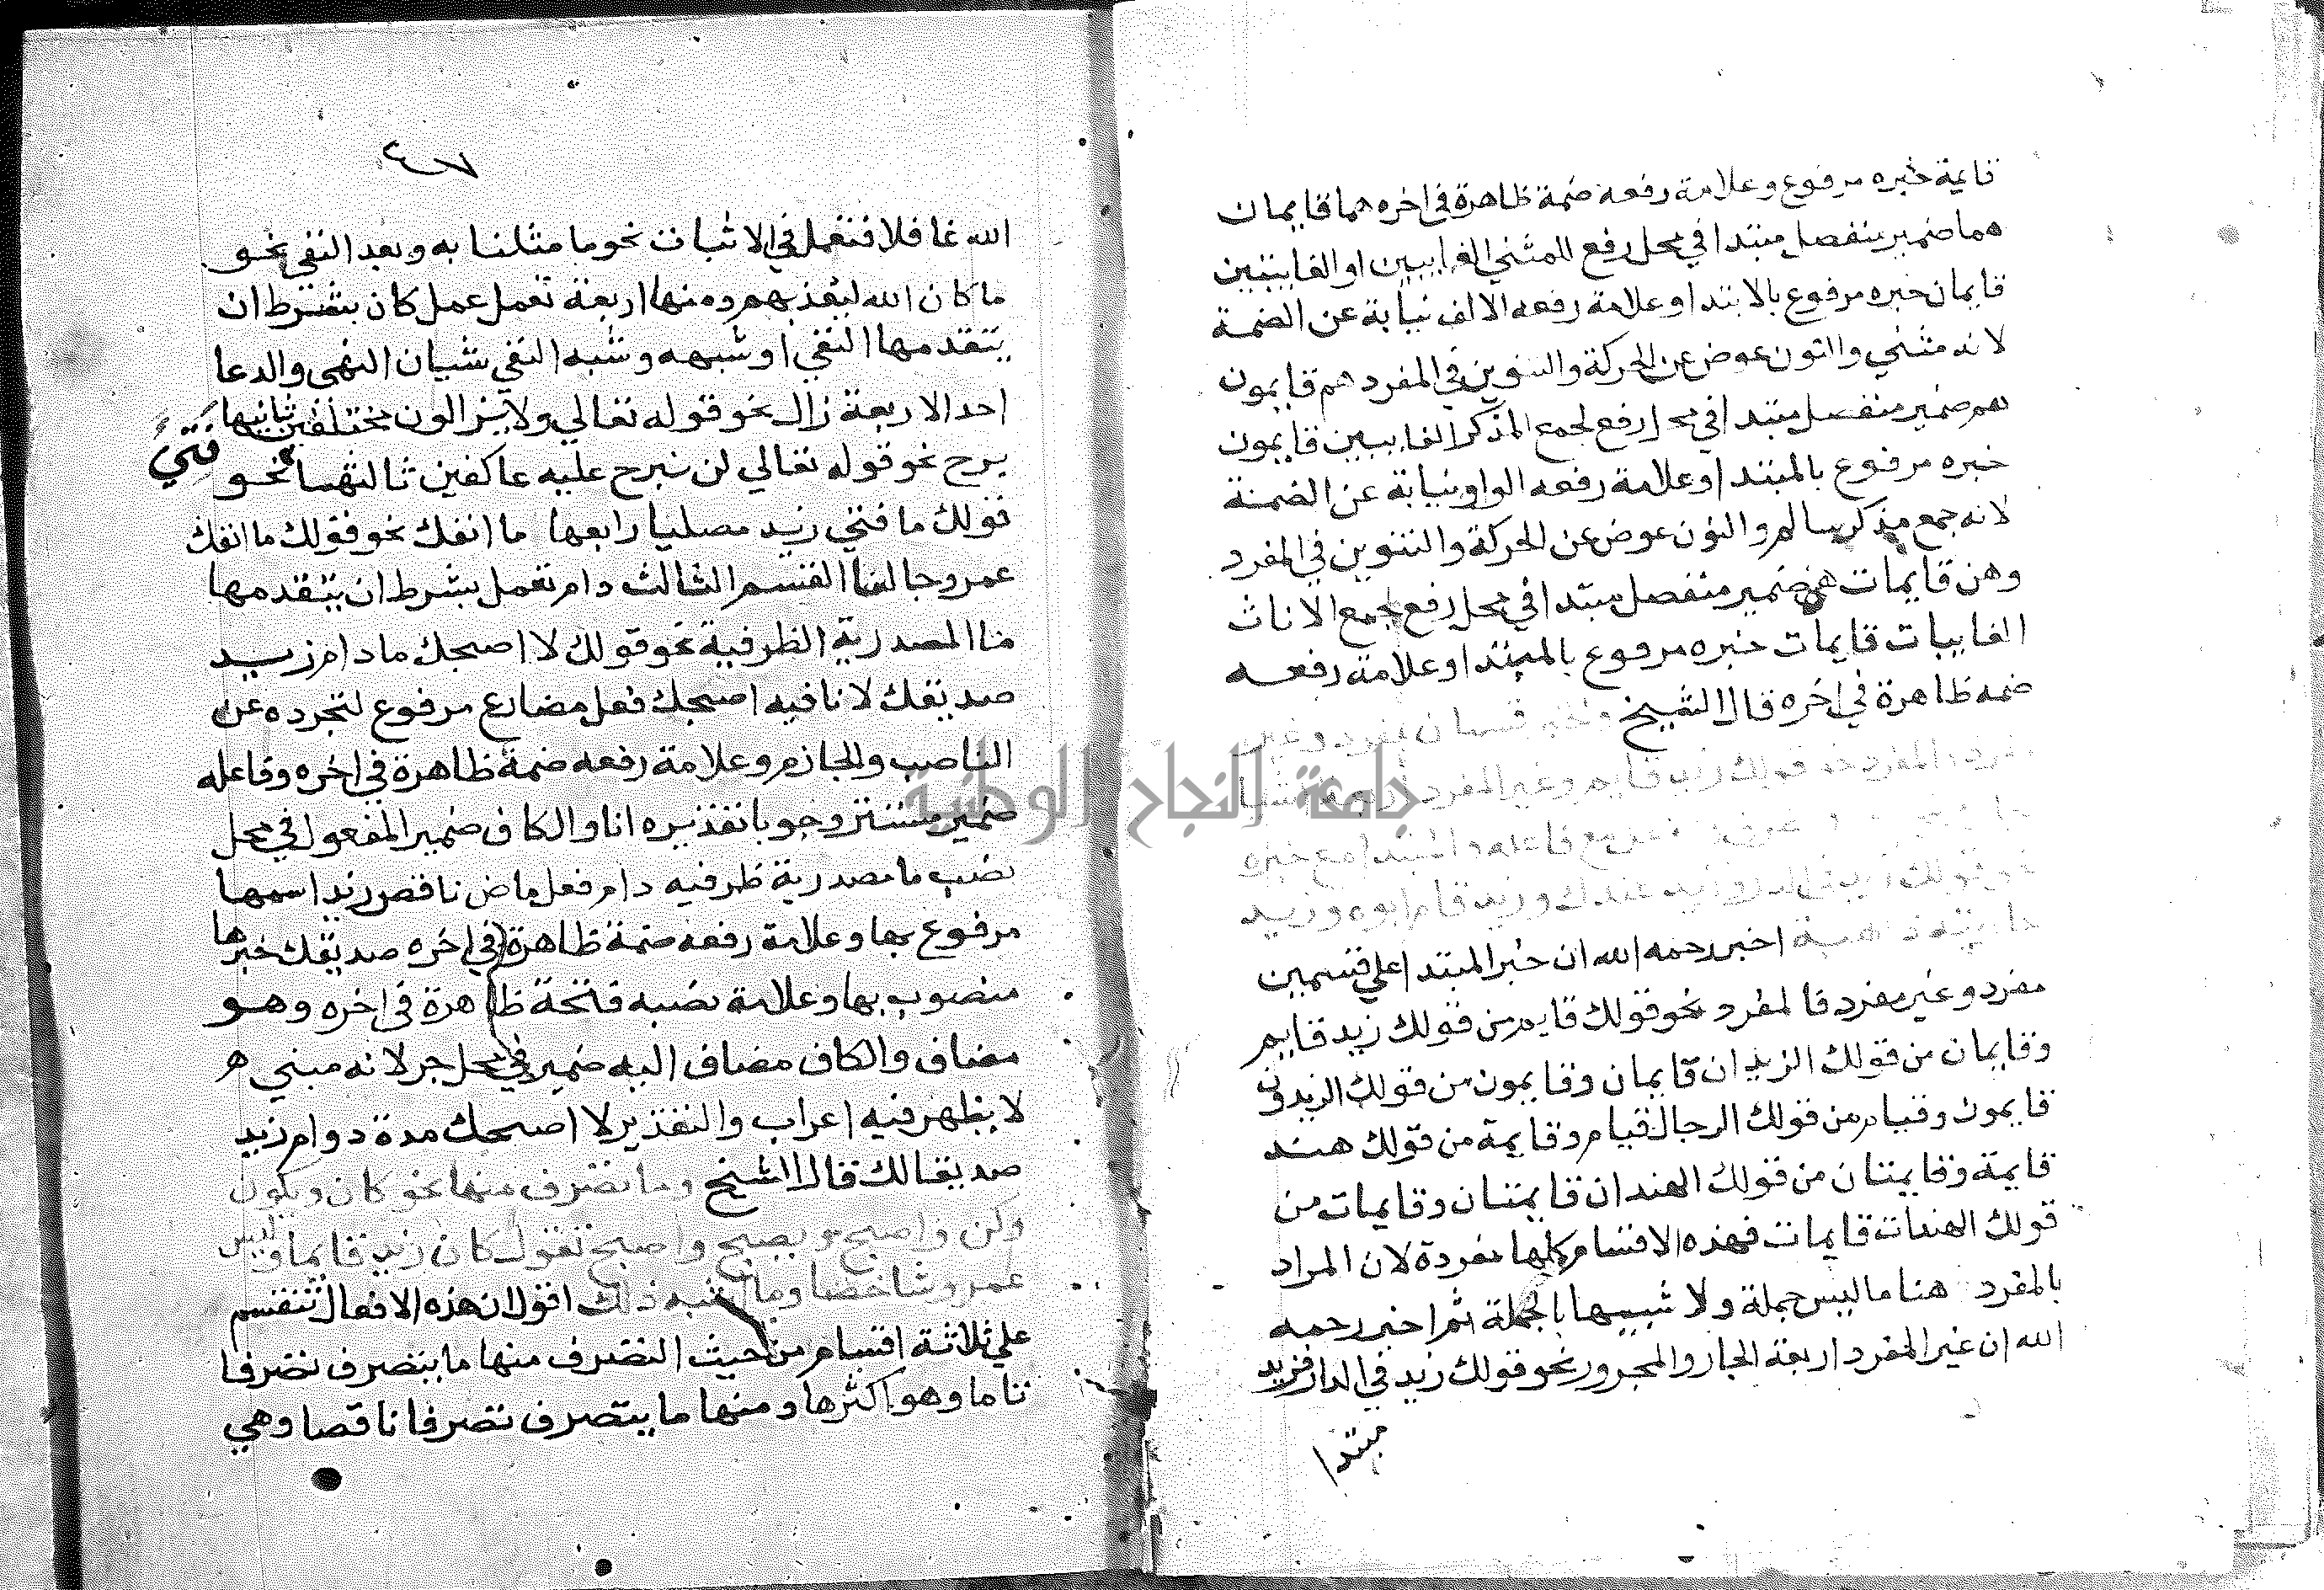 قايمة خبره مرفوع وعلامة رفعه ضمة ظاهرة في اخره هما قايمان
هما ضمير منفصل مبتدا في محل رفع للمثني الغايبين او الغايبتين
قايمان خبره مرفوع بالابتدا وعلامة رفعه الالف نيابة عن الضمة
لانه مثني والنون عوض عن الحركة والتنوين في المفرد هم قايمون
هم ضمير منفصل مبتدا في محل رفع لجمع المذكر الغايبين قايمون
خبره مرفوع بالمبتدا وعلامة رفعه الواو نيابة عن الضمة
لانه جمع مذكر سالم والنون عوض عن الحركة والتنوين في المفرد
وهن قايمات هن ضمير منفصل مبتدا في محل رفع لجمع الاناث
الغايبات قايمات خبره مرفوع بالمبتدا وعلامة رفعه
ضمه ظاهرة في اخره قال الشيخ والخبر قسمان مفرد وغير
مفرد فالمفرد نحو قولك زيد قايم وغير المفرد اربعة اشيا
مع فاعله والمبتدا مع خبره
نحو قولك زيد في الدار وزيد عندك وزيد قام ابوه وزيد
جاريته ذاهبة اخبر رحمه الله ان خبر المبتدا علي قسمين
مفرد وغير مفرد فالمفرد نحو قولك قايم من قولك زيد قايم
وقايمان من قولك الزيدان قايمان وقايمون من قولك الزيدون
قايمون وقيام من قولك الرجال قيام وقايمة من قولك هند
قايمة وقايمتان من قولك الهندان قايمتان وقايمات من
قولك الهندات قايمات فهذه الاقسام كلها مفردة لان المراد
بالمفرد هنا ما ليس جملة ولا شبيها بالجملة ثم اخبر رحمه
الله ان غير المفرد اربعة الجار والمجرور نحو قولك زيد في الدار فزيد
مبتدا
٤٧
الله غافلا فتعمل في الاثبات نحو ما مثلنا به وبعد النفي نحو
ما كان الله ليعذبهم ومنها اربعة تعمل عمل كان بشرط ان
يتقدمها النفي او شبهه وشبه النفي شيان النهي والدعا
احد الاربعة زال نحو قوله تعالي ولا يزالون مختلفين ثانيها
برح نحو قوله تعالي لن نبرح عليه عاكفين ثالثها نحو
فتئ
قولك ما فتئ زيد مصليا رابعها ما انفك نحو قولك ما انفك
عمرو جالسا القسم الثالث دام تعمل بشرط ان يتقدمها
ما المصدرية الظرفية نحو قولك لا اصحبك ما دام زيد
صديقك لا نافيه اصحبك فعل مضارع مرفوع لتجرده عن
الناصب والجازم وعلامة رفعه ضمة ظاهرة في اخره وفاعله
ضمير مستتر وجوبا تقديره انا والكاف ضمير المفعول في محل
نصب ما مصدرية ظرفيه دام فعل ماض ناقص زيد اسمها
مرفوع بها وعلامة رفعه ضمة ظاهرة في اخره صديقك خبرها
منصوب بها وعلامة نصبه فتحة ظاهرة في اخره وهو
مضاف والكاف مضاف اليه ضمير في محل جر لانه مبني
لا يظهر فيه اعراب والتقدير لا اصحبك مدة دوام زيد
صديقا لك قال الشيخ وما تصرف منها نحو كان ويكون
وكن واصبح ويصبح واصبح تقول كان زيد قايما وليس
عمرو شاخصا وما اشبه ذلك اقول ان هذه الافعال تنقسم
علي ثلاثة اقسام من حيث التصرف منها ما يتصرف تصرفا
تاما وهو اكثرها ومنها ما يتصرف تصرفا ناقصا وهي
جامعة النجاح الوطنية